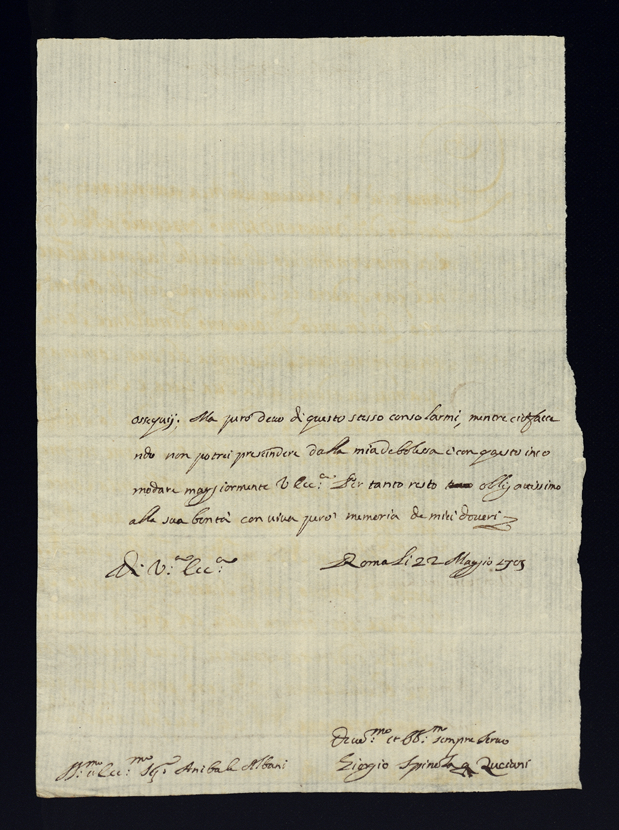 ossequij; Ma però devo di questo stesso consolarmi, mentre ciò facce
ndo non potrei prescindere dalla mia debbolessa e con questo inco
modare maggiormente V. Ecc.ᵃ Per tanto resto obligatissimo
alla sua bontà con viva però memoria de miei doveri
Di V.ᵃ Ecc.ᵃ Roma li 22 Maggio 1703
Devo.ᵐᵒ et Obb.ᵐᵒ sempre Servo
Ill.ᵐᵒ e Ecc.ᵐᵒ Sig.ʳ Anibale Albani Giorgio Spinola